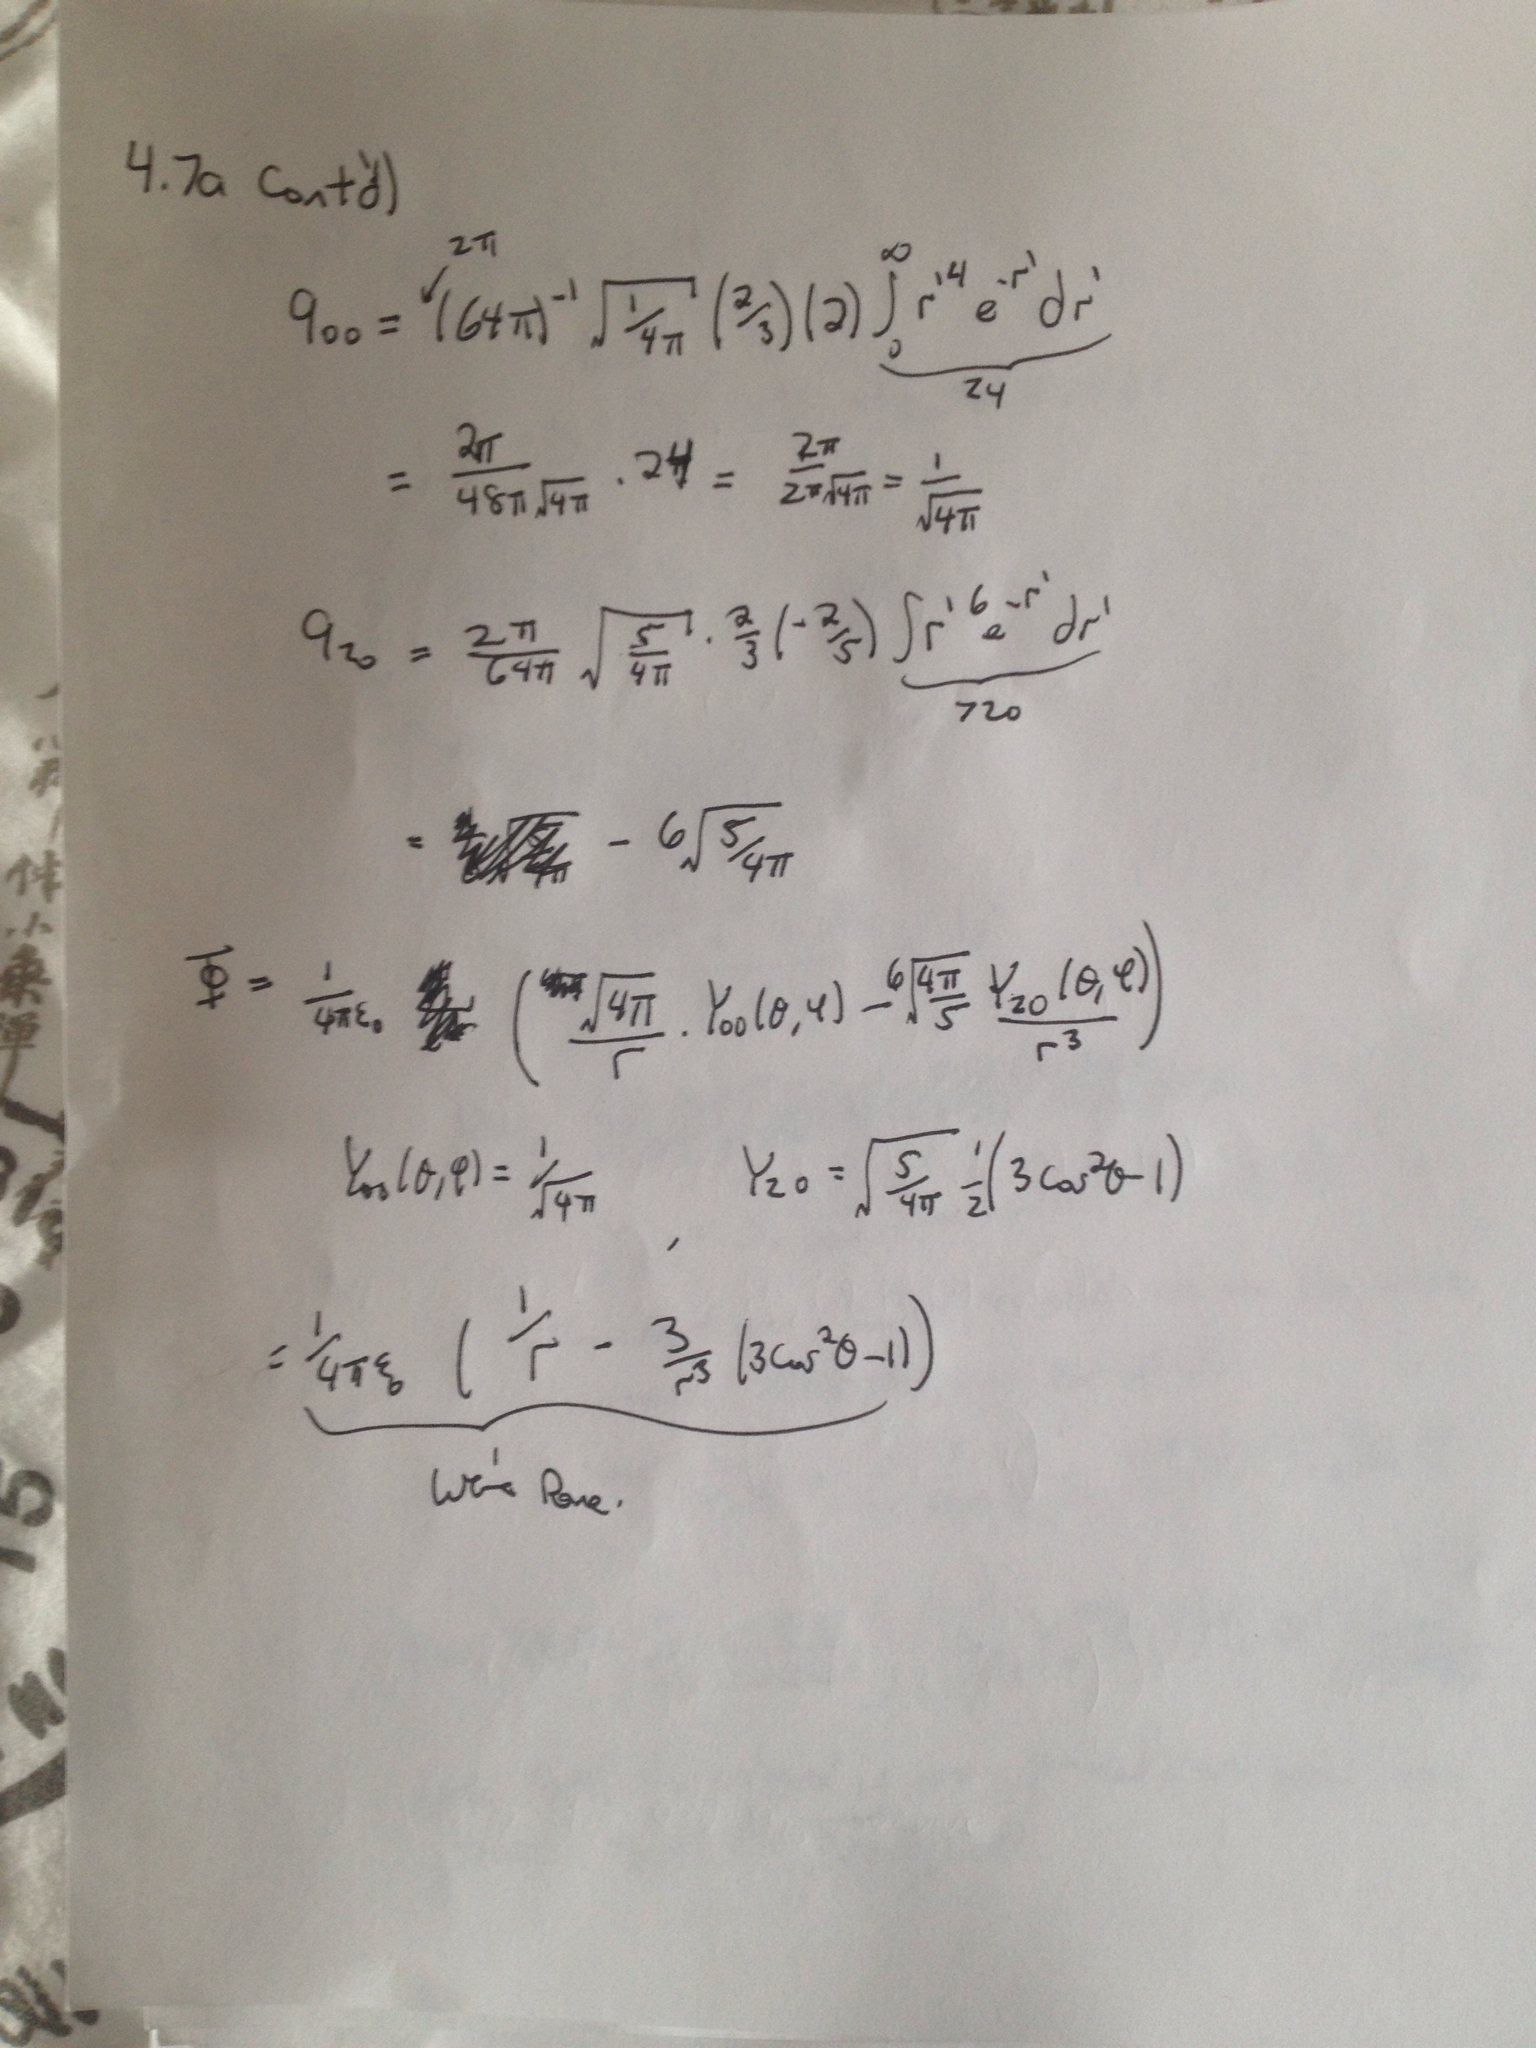 4.7a Cont'd)
2π
q₀₀ = (64π)⁻¹ √(1/4π) (2/3) (2) ∫₀^∞ r'⁴ e^(-r') dr'
24
= 2π/(48π√4π) · 24 = 2π/(2π√4π) = 1/√4π
q₂₀ = 2π/64π √(5/4π) · 2/3 (-2/5) ∫ r'⁶ e^(-r') dr'
720
= - 6√(5/4π)
Φ = 1/4πε₀ ( √4π/r · Y₀₀(θ,φ) - 6√(4π/5) Y₂₀(θ,φ)/r³ )
Y₀₀(θ,φ) = 1/√4π , Y₂₀ = √(5/4π) 1/2 (3cos²θ-1)
= 1/4πε₀ ( 1/r - 3/r³ (3cos²θ-1) )
We're Done.